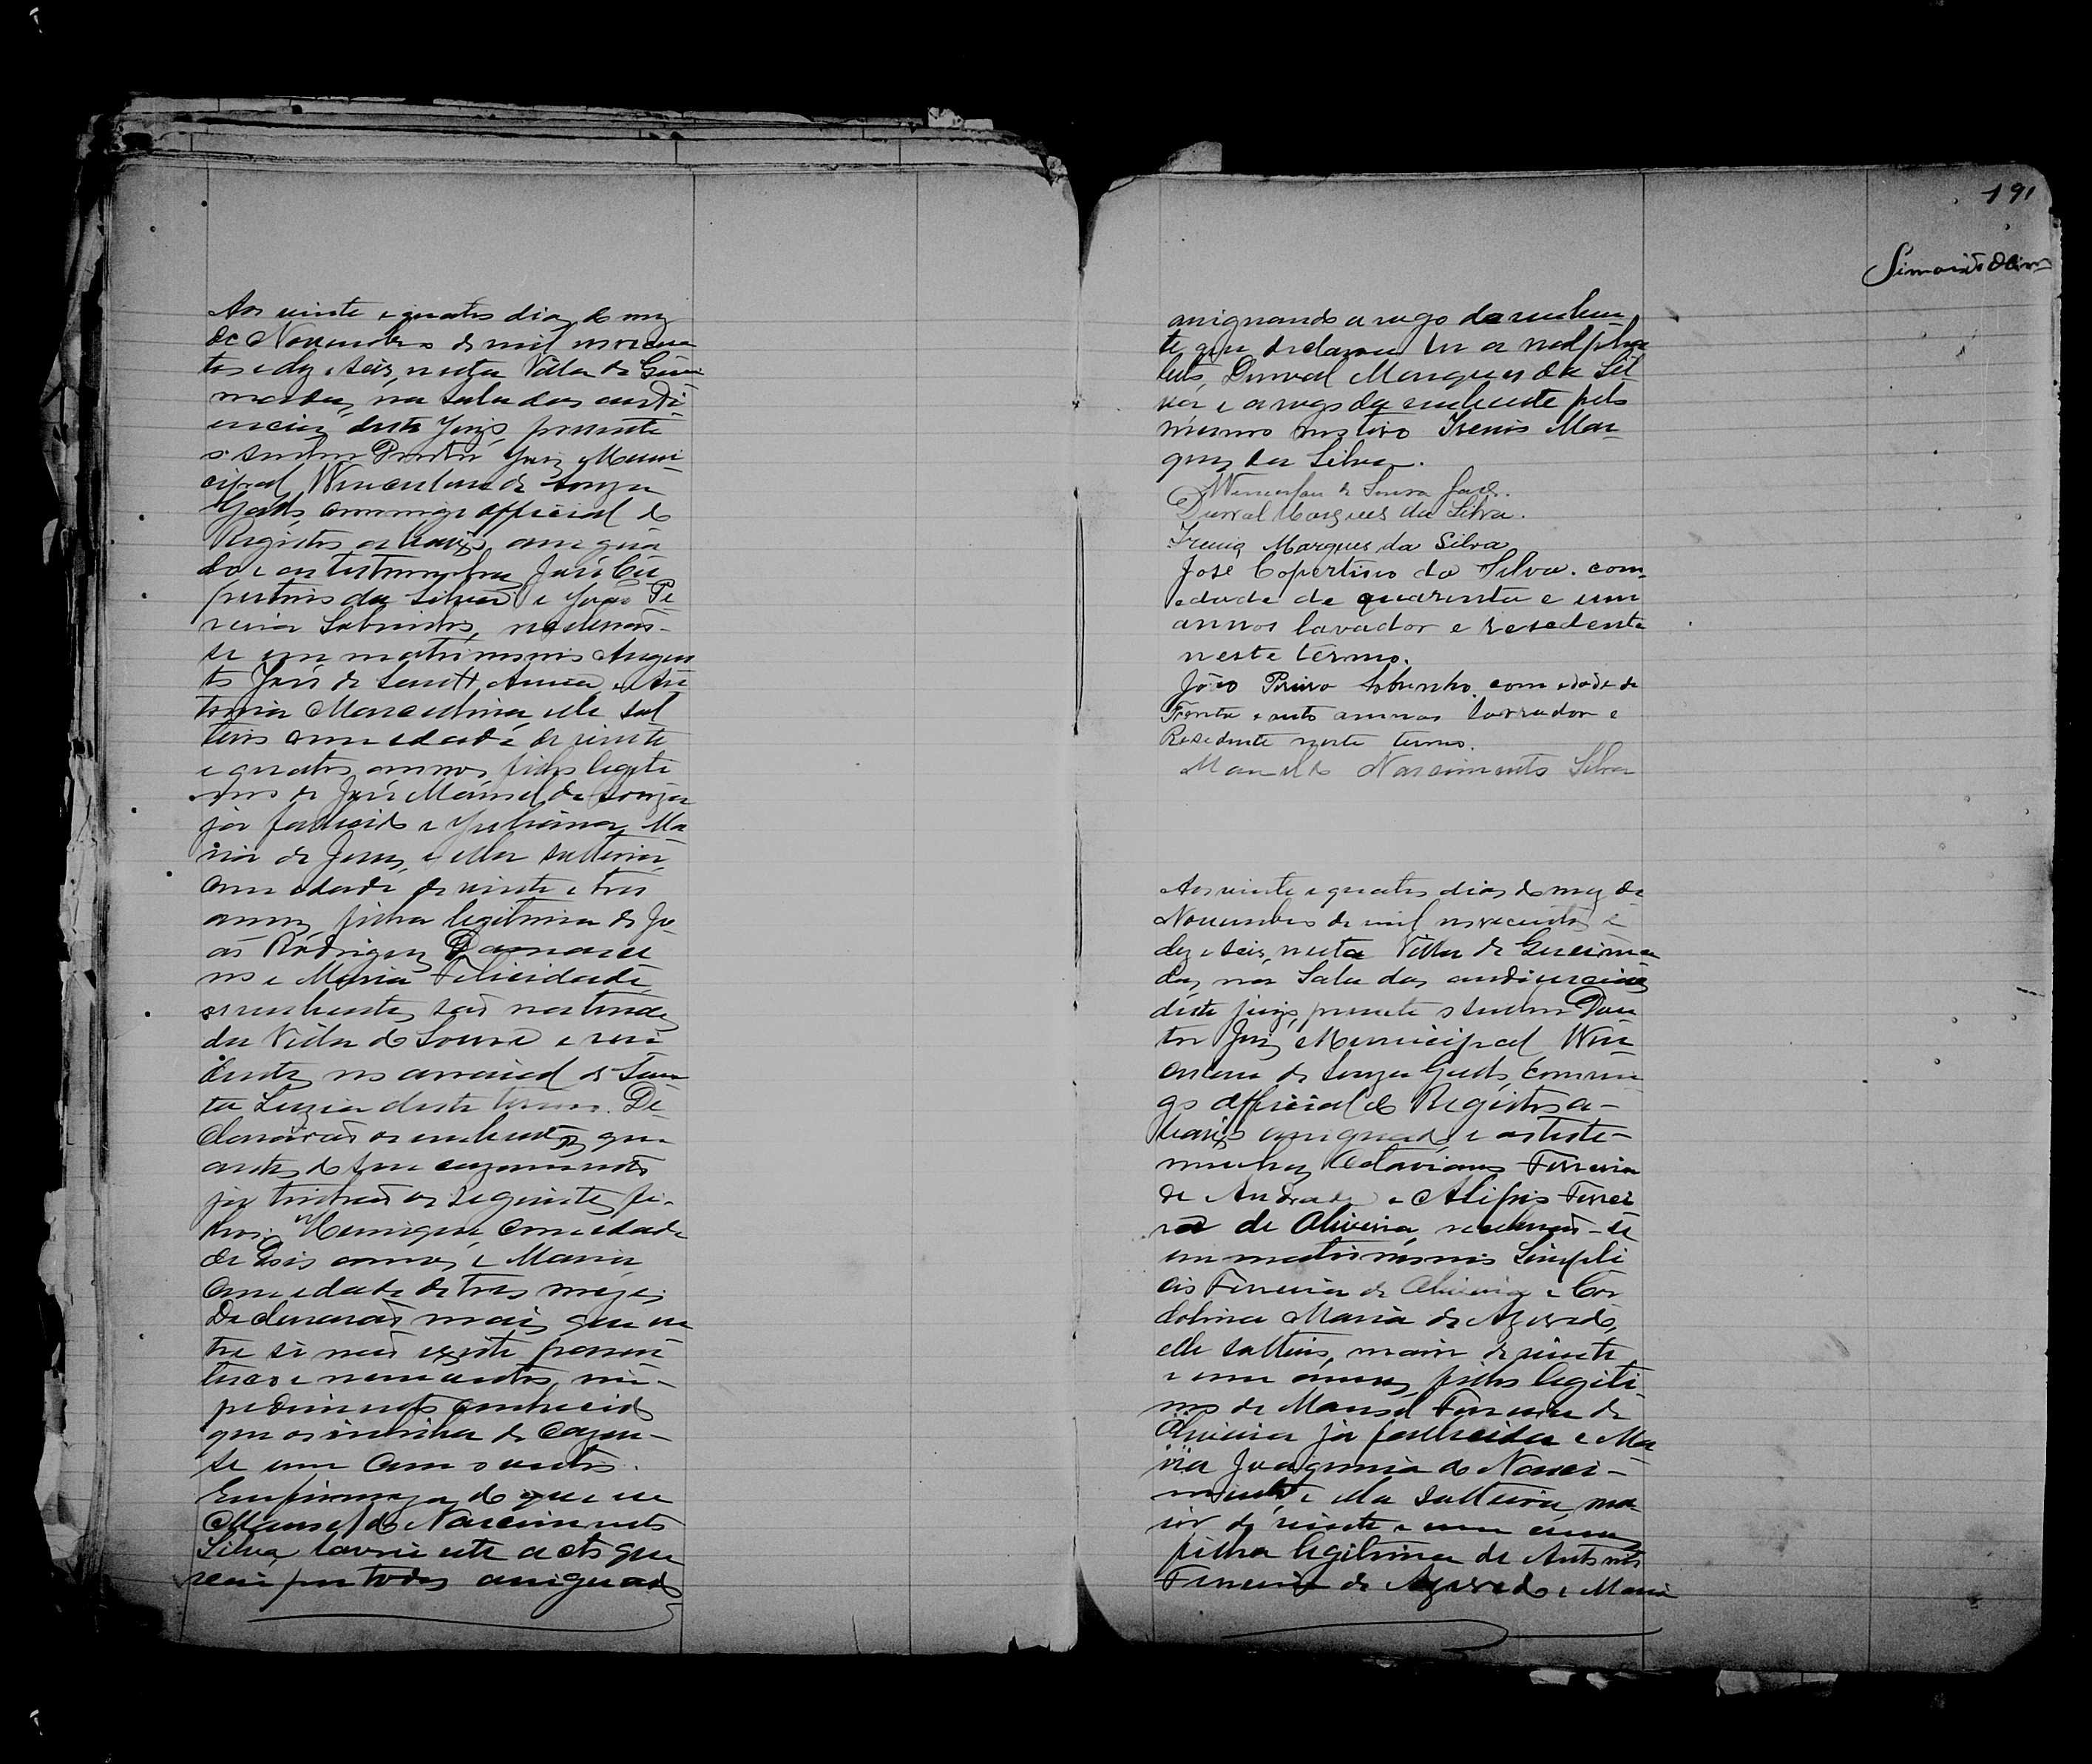 Aos vinte e quatro dias do mez
de Novembro de mil novecen
tos e dez e seis, nesta Villa de Guei
madas, na sala das audi-
encias deste Juizo, presente
o senhor Doutor Juiz Muni-
cipal Wencesláu de Souza
Gods, commigo official do
Registro abaixo assigna
do e as testemunhas José Cu
pertino da Silva e João Pe
reira Sobrinho, receberão-
se em matrimonio Augus
to José de Sant'Anna e An
tonia Marcelina, elle sol
teiro com edade de vinte
e quatro annos, filho legiti
mo de José Manoel de Souza
já fallecido e Juliana Ma
ria de Jesus, e ella solteira,
com edade de vinte e tres
annos, filha legitima de Jo
ão Rodrigues Damasce
no e Maria Felicidade
os nubentes são naturaes
da Villa do Soure e resi
dentes no arraial de San
ta Luzia deste termo. De
clararão os nubentes que
antes do seu cazamento
já tinhão os seguintes fi-
lhos: Henrique com edade
de dois annos, e Maria
com edade de tres mezes
Declararão mais que en
tre si não existe paren
tesco e nem outro im-
pedimento conhecido
que os inhiba de cazar-
se um com o outro.
Em firmeza do que eu
Manoel do Nascimento
Silva lavrei este acto que
vai por todos assignado
191
assignando a rogo da nuben
te que declarou ser analpha
beto, Durval Marques da Sil
va e a rogo da nubente pelo
mesmo motivo Irenio Mar-
ques da Silva.
Wenceslau de Souza
Durval Marques da Silva.
Irenio Marques da Silva
José Copertino da Silva. com
edade de quarenta e um
annos lavador e resedente
neste termo.
João Pereira Sobrinho. com edade de
Trenta e outo annos lavrador e
Resedente neste termo.
Manoel do Nascimento Silva
Aos vinte e quatro dias do mez de
Novembro de mil novecentos e
dez e seis, nesta Villa de Gueima
das, na Sala das audiencias
deste juizo, presente o senhor Dou
tor Juiz Municipal Wen
cesláu de Souza Gods, commi
go official do Registro a-
baixo assignado, e as teste-
munhas Octaviano Ferreira
de Andrade e Alipio Ferrei
ra de Oliveira, receberão-se
em matrimonio Simpli
cio Ferreira de Oliveira e Cor
dolina Maria de Azevedo,
elle solteiro, maior de vinte
e um annos, filho legiti-
mo de Manoel Ferreira de
Oliveira já fallecido e Ma
ria Joaquina do Nasci-
mento e ella solteira, ma
ior de vinte e um annos
filha legitima de Antonio
Ferreira de Azevedo e Maria